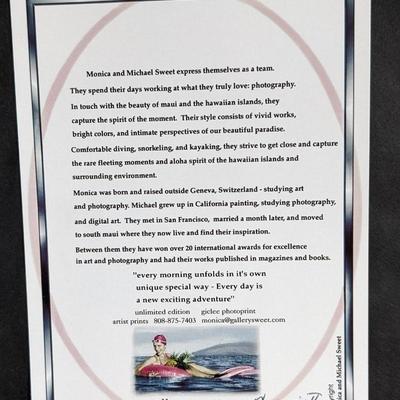 Monica and Michael Sweet express themselves as a team.
They spend their days working at what they truly love: photography.
In touch with the beauty of maui and the hawaiian islands, they
capture the spirit of the moment. Their style consists of vivid works,
bright colors, and intimate perspectives of our beautiful paradise.
Comfortable diving, snorkeling, and kayaking, they strive to get close and capture
the rare fleeting moments and aloha spirit of the hawaiian islands and
surrounding environment.
Monica was born and raised outside Geneva, Switzerland - studying art
and photography. Michael grew up in California painting, studying photography,
and digital art. They met in San Francisco, married a month later, and moved
to south maui where they now live and find their inspiration.
Between them they have won over 20 international awards for excellence
in art and photography and had their works published in magazines and books.
"every morning unfolds in it's own
unique special way - Every day is
a new exciting adventure"
unlimited edition giclee photoprint
artist prints 808-875-7403 monica@gallerysweet.com
and Michael Sweet